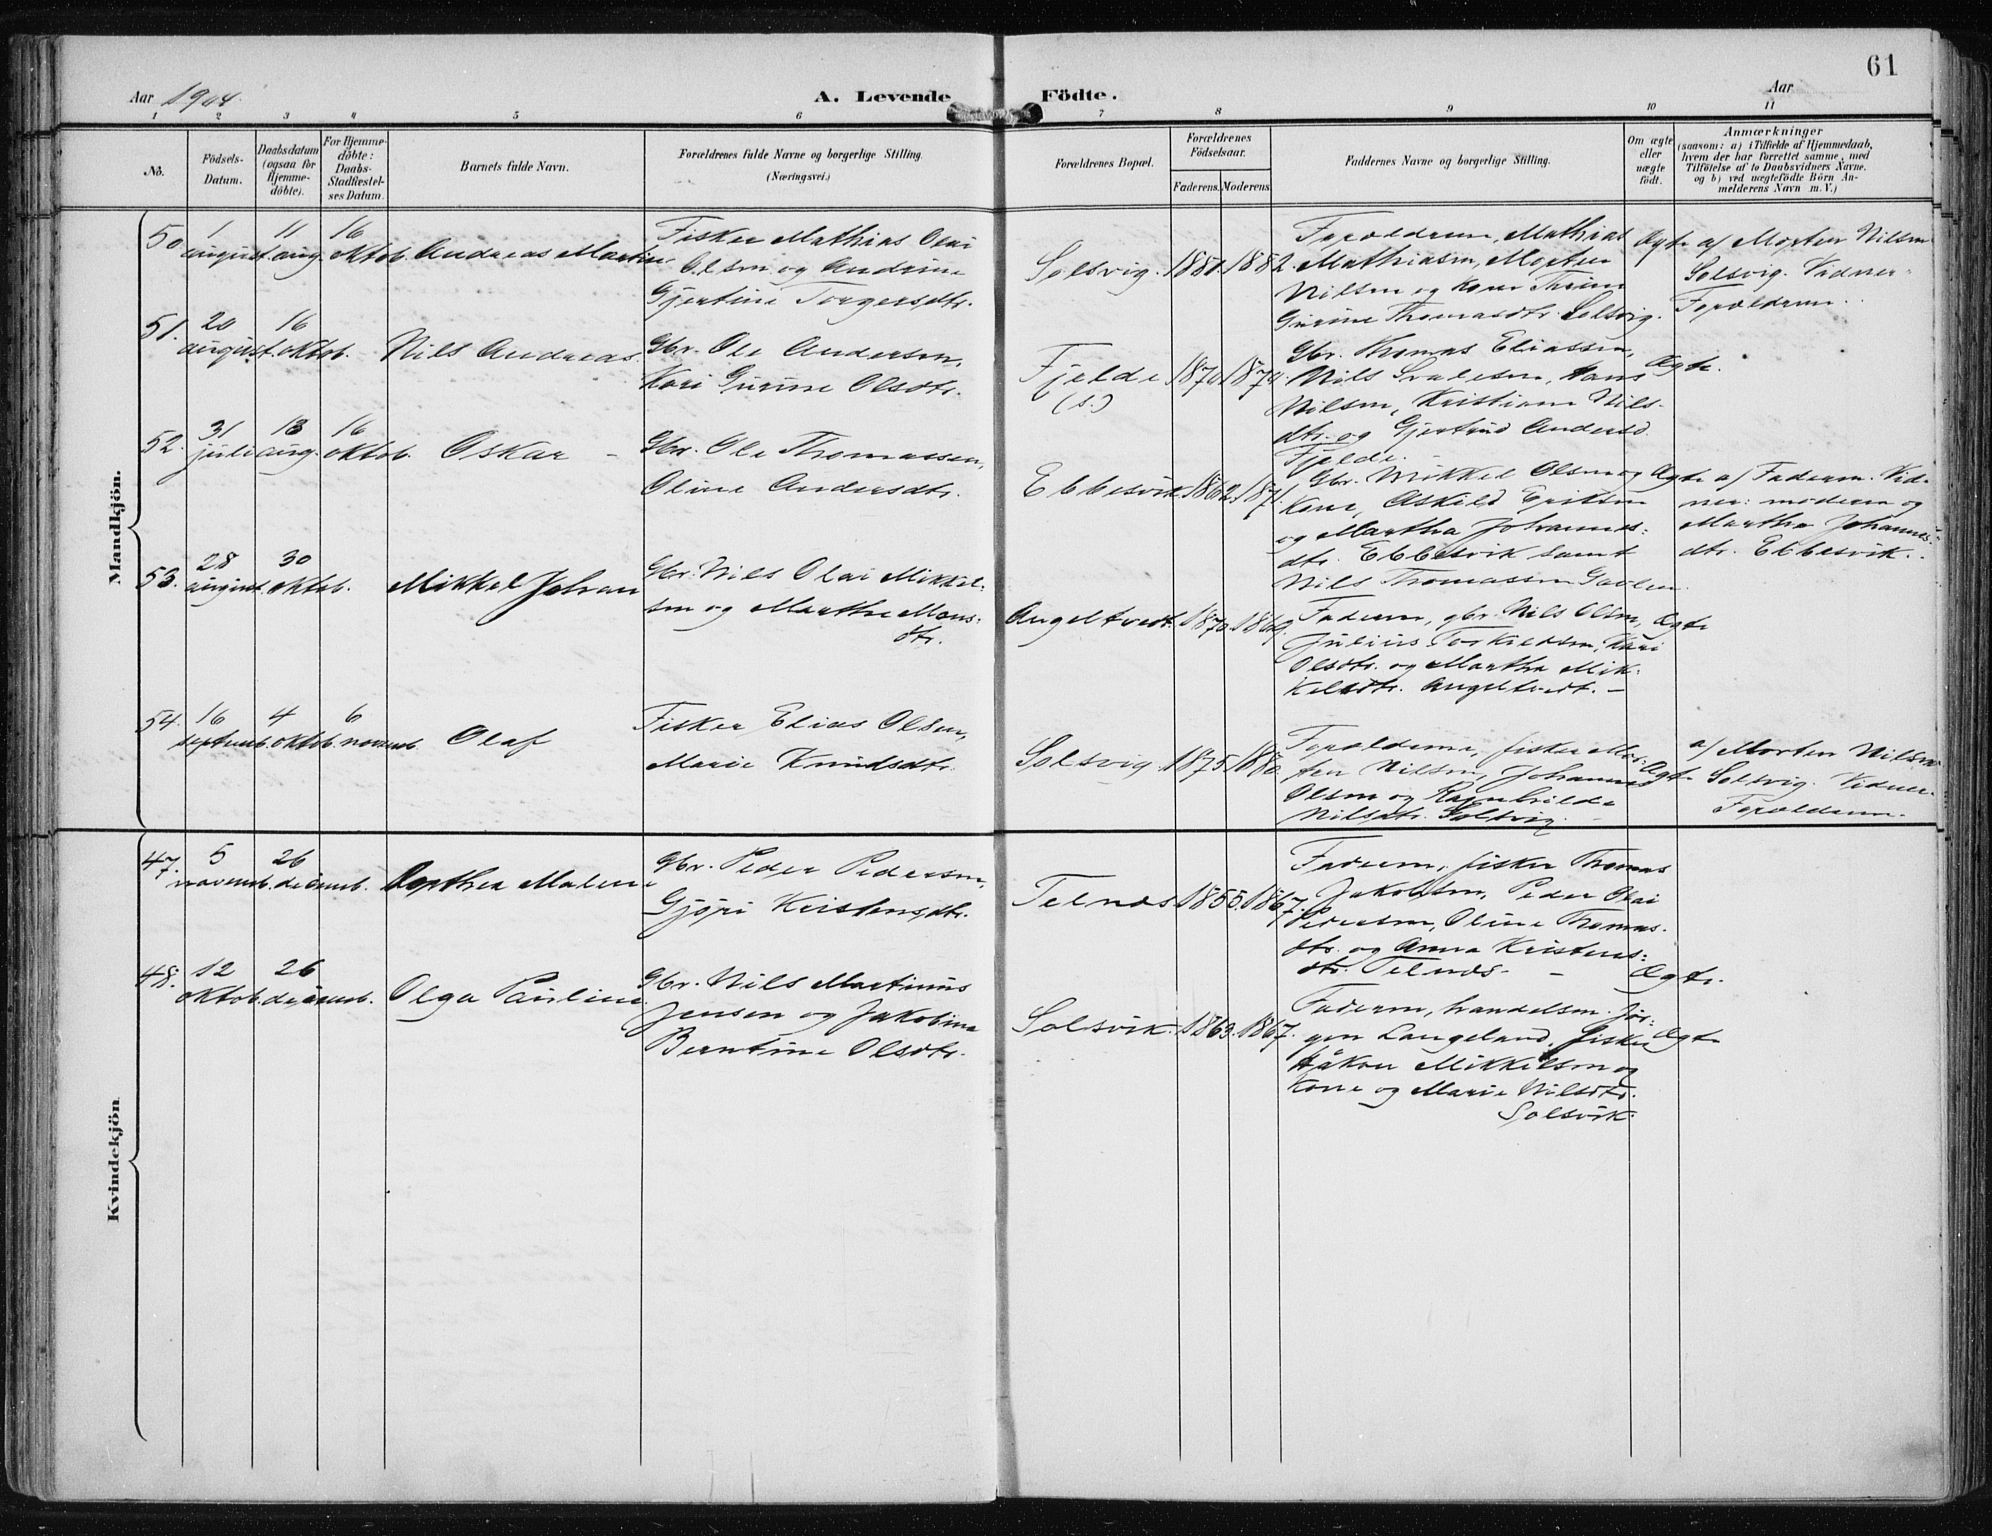 61
Aar 1904.
A. Levende Födte.
Aar
1 2 3 4 5 6 7 8 9 10 11
No.
Födsels-
Datum.
Daabsdatum
(ogsaa för
Hjemme-
döbte).
For Hjemme-
döbte:
Daabs-
Stadfæstel-
ses Datum.
Barnets fulde Navn.
Forældrenes fulde Navne og borgerlige Stilling.
(Næringsvei.)
Forældrenes Bopæl.
Forældrenes
Födselsaar.
Faderens. Moderens.
Faddernes Navne og borgerlige Stilling.
Om ægte
eller
uægte
födt.
Anmærkninger
(saasom: a) i Tilfælde af Hjemmedaab,
hvem der har forrettet samme, med
Tilföielse af to Daabsvidners Navne,
og b) ved uægtefödte Börn An-
melderens Navn m. V.)
Mandkjön.
50. 1 august. 11 aug. 16 oktob. Andreas Martin
Fisker Mathias Olai
Olsen og Andrine
Gjertine Torgersdtr.
Solsvig. 1880. 1882.
Forældrene, Mathias
Mathiasen, Morten
Nilsen og Kone
Gurine Thomasdtr. Solsvig.
Ægte
a/ Morten Nilsen
Solsvig. Vidner
Forældrene.
51. 20 august. 16 oktob. Nils Andreas
Gbr. Ole Andersen,
Kari Gurine Olsdtr.
Fjelde
(s.)
1870. 1879.
Gbr. Thomas Eliassen,
Nils, Hans
Nilsen, Kristiane Nils-
dtr. og Gjertrud Andersd.
Fjelde.
Ægte.
52. 31 juli 13 aug. 16 oktob. Oskar -
Gbr. Ole Thomassen,
Oline Andersdtr.
Ebbesvik 1862. 1871.
Gbr. Mikkel Olsen og
Kone, Askild Eriksen
og Martha Johannes-
dtr. Ebbesvik samt
Nils Thomassen
Ægte
a/ Faderen. Vid-
ner: moderen og
Martha Johannes-
dtr. Ebbesvik.
53. 28 august. 30 oktob. Mikkel Johan
Gbr. Nils Olai Mikkel-
sen og Marthe Mons-
dtr.
Angeltvedt. 1870. 1869.
Faderen, gbr. Nils Olsen,
Julius Torkildsen, Kari
Olsdtr. og Martha Mik-
kelsdtr. Angeltvedt. -
Ægte
54. 16 septemb. 4 oktob. 6 novemb. Olaf
Fisker Elias Olsen,
Marie Knudsdtr.
Solsvig. 1875. 1880.
Forældrene, fisker Mor-
ten Nilsen, Johannes
Olsen og Ragnhilde
Nilsdtr. Solsvig.
Ægte
a/ Morten Nilsen
Solsvig. Vidner
Forældrene.
Kvindekjön
47. 5 novemb. 26 decemb. Dorthea Malene
Gbr. Peder Pedersen,
Gjøri Kristensdtr.
Telnæs 1855. 1867.
Faderen, fisker Thomas
Jakobsen, Peder Olai
Pedersen, Oline Thomas-
dtr. og Anna Kristens-
dtr. Telnæs. -
Ægte.
48. 12 oktob. 26 decemb. Olga Pauline
Gbr. Nils Martinus
Jensen og Jakobina
Berntine Olsdtr.
Solsvik. 1863. 1867.
Faderen, handelsm. Jør-
gen Langeland, fisker
Håkon Mikkelsen og
Kone og Marie Nilsdtr.
Solsvik.
Ægte